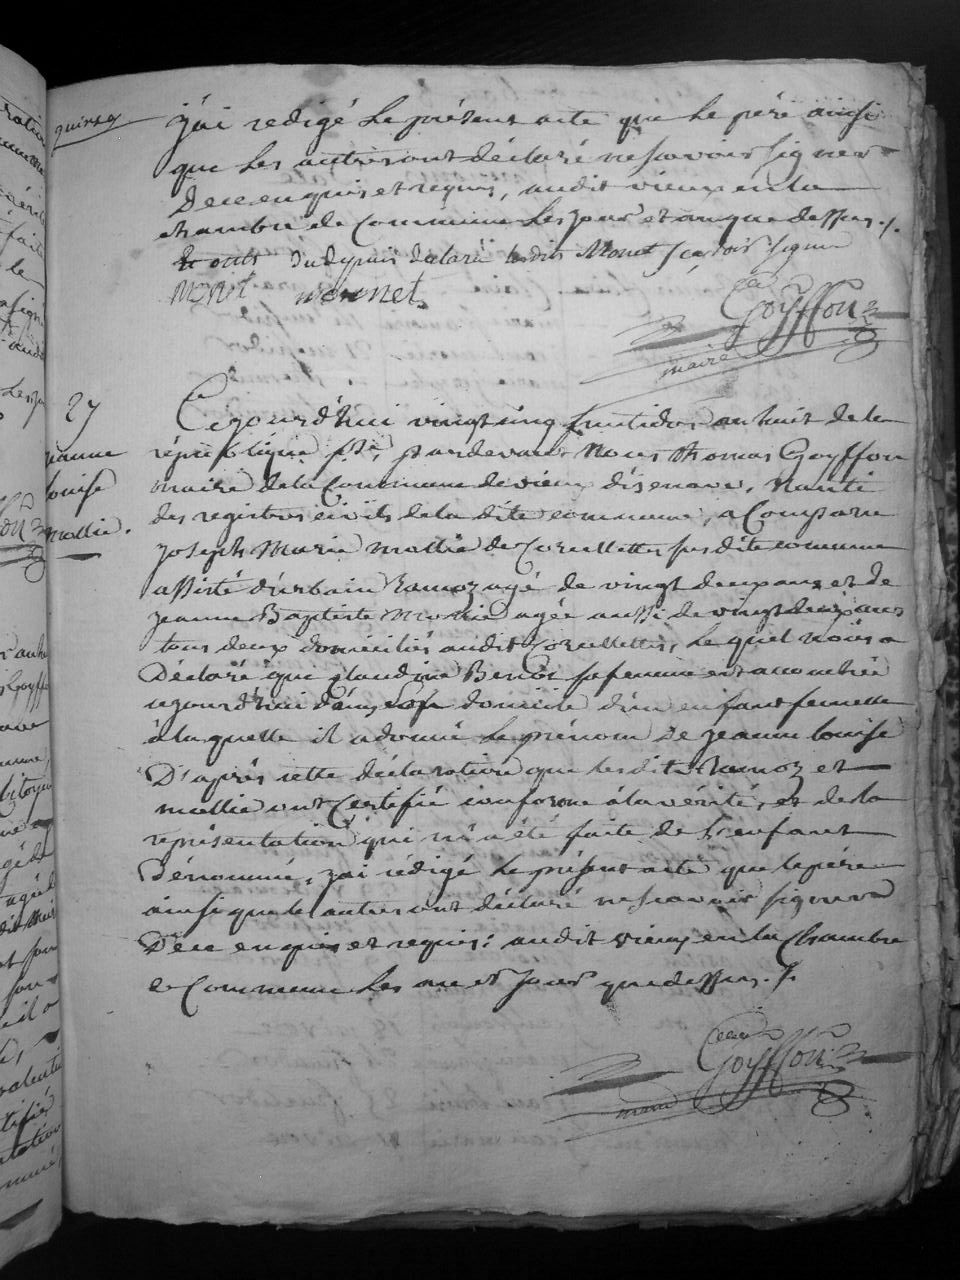 j'ai redigé le présent acte que le père ainsi
que les autres ont déclaré ne savoir signer
De ce enquis et requis, audit vieux en la
chambre de Commune les jour et an que dessus./.
du depuis declaré ledit Monet scavoir signer
monet monnet
Goyffon
maire
27
jeanne
louise
mollie.
Cejourd'hui vingt cinq fructidor an huit de la
république fse, pardevant Nous thomas Goyffon
maire de la Commune de vieux disenave, Nanti
des registres civils de la dite commune, a Comparu
joseph Marie mollie de Corcellettes susdite commune
assisté d'urbain Ramoz agé de vingt deux ans et de
jeanne Baptiste mollie agée aussi de vingt deux ans
tous deux domiciliés audit Corcellettes, Lequel nous a
Déclaré que glaudine Benoit sa femme est accouchée
cejourd'hui dans son domicile d'un enfant femelle
à laquelle il a donné le prénom de jeanne louise
D'après cette déclaration que lesdits Ramoz et
mollie ont Certifié conforme à la vérité, et de la
représentation qui m'a été faite de l'enfant
Dénommé, j'ai rédigé le présent acte que le père
ainsi que les autres ont déclaré ne scavoir signer
De ce enquis et requis; audit vieux en la Chambre
de Commune les an et jour que dessus./.
Goyffon
maire